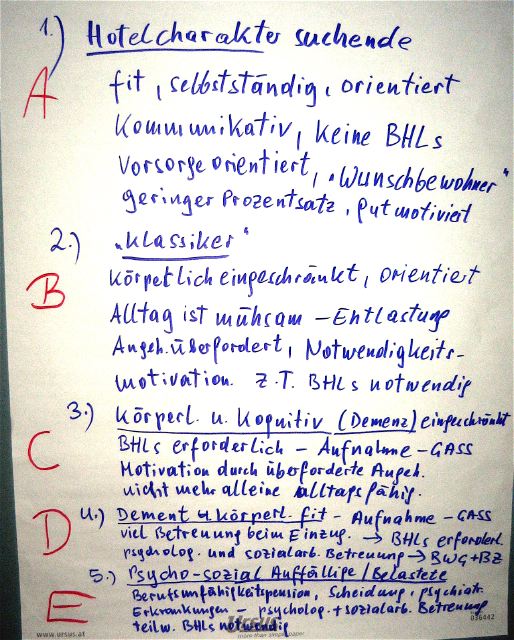 1.) Hotelcharakter suchende
A fit, selbstständig, orientiert
Kommunikativ, keine BHLs
Vorsorgeorientiert, "Wunschbewohner"
geringer Prozentsatz, gut motiviert
2.) "Klassiker"
B Körperlich eingeschränkt, orientiert
Alltag ist mühsam – Entlastung
Angeh. überfordert, Notwendigkeits-
motivation. z.T. BHLs notwendig
3.) Körperl. u. Kognitiv (Demenz) eingeschränkt
C BHLs erforderlich – Aufnahme – GASS
Motivation durch überforderte Angeh.
nicht mehr alleine alltagsfähig.
D 4.) Dement u körperl. fit – Aufnahme – GASS
viel Betreuung beim Einzug. → BHLs erforderl.
psycholog. und sozialarb. Betreuung → BWG + BZ
5.) Psycho-sozial Auffällige / Belastete
E Berufsunfähigkeitspension, Scheidung, psychiatr.
Erkrankungen – psycholog. + sozialarb. Betreuung
teilw. BHLs notwendig
www.ursus.at
Ursus
more than simple paper
036442